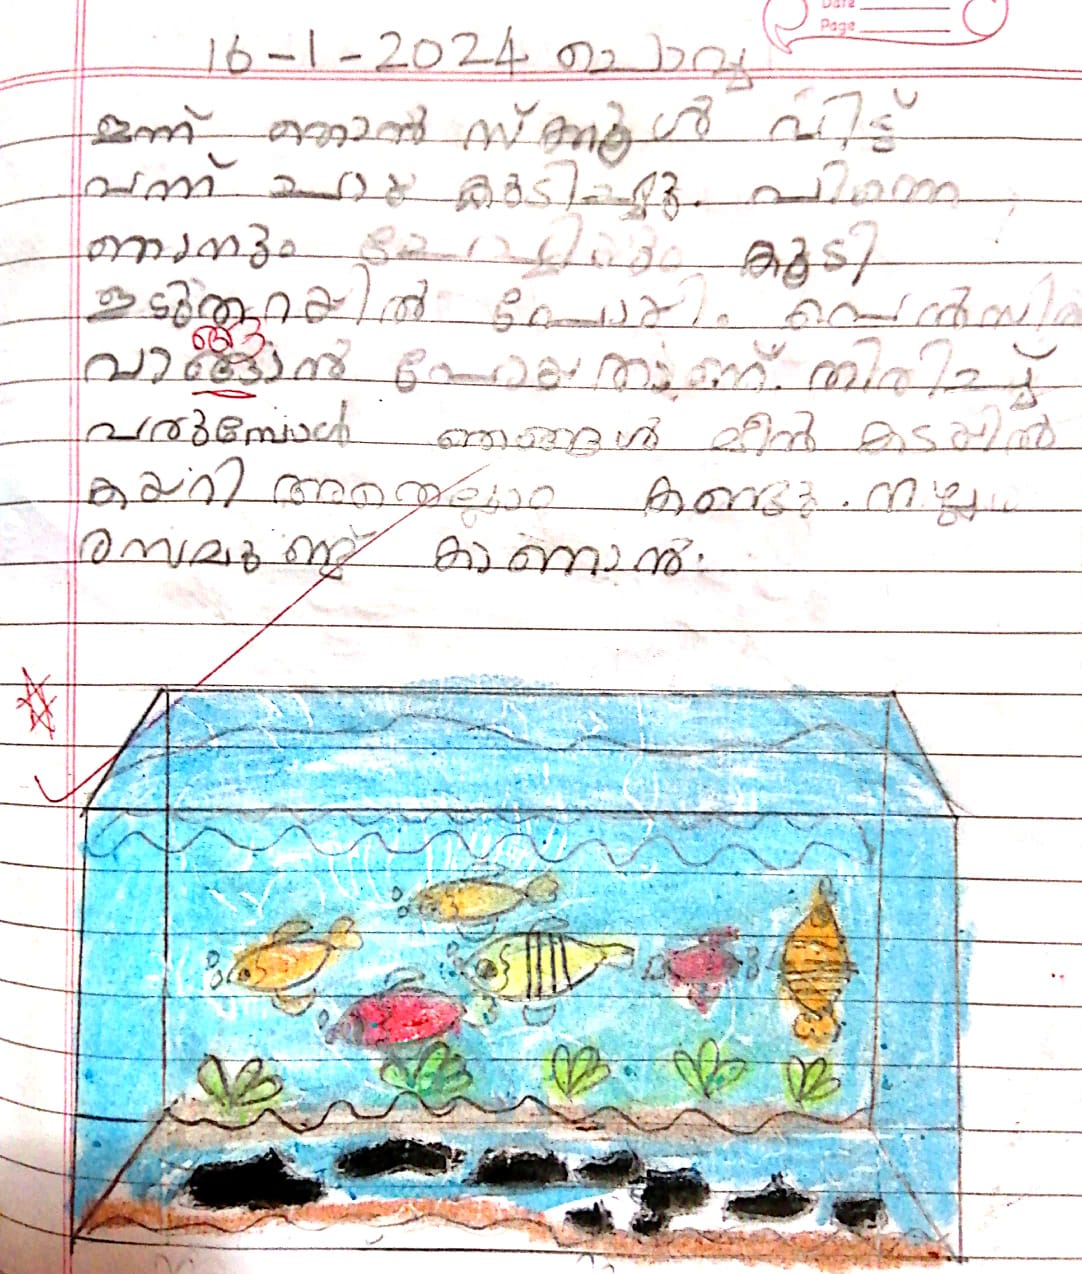 Date
Page
16-1-2024 ചൊവ്വ
ഇന്ന് ഞാൻ സ്കൂൾ വിട്ട്
വന്ന് ചായ കുടിച്ചു. പിന്നെ
ഞാനും ചേച്ചിയും കൂടി
പോയി. പെൻസിൽ
വാങ്ങാൻ പോയതാണ്. തിരിച്ച്
വരുമ്പോൾ ഞങ്ങൾ മീൻ കടയിൽ
കയറി അതെല്ലാം കണ്ടു. നല്ല
രസമുണ്ട് കാണാൻ.